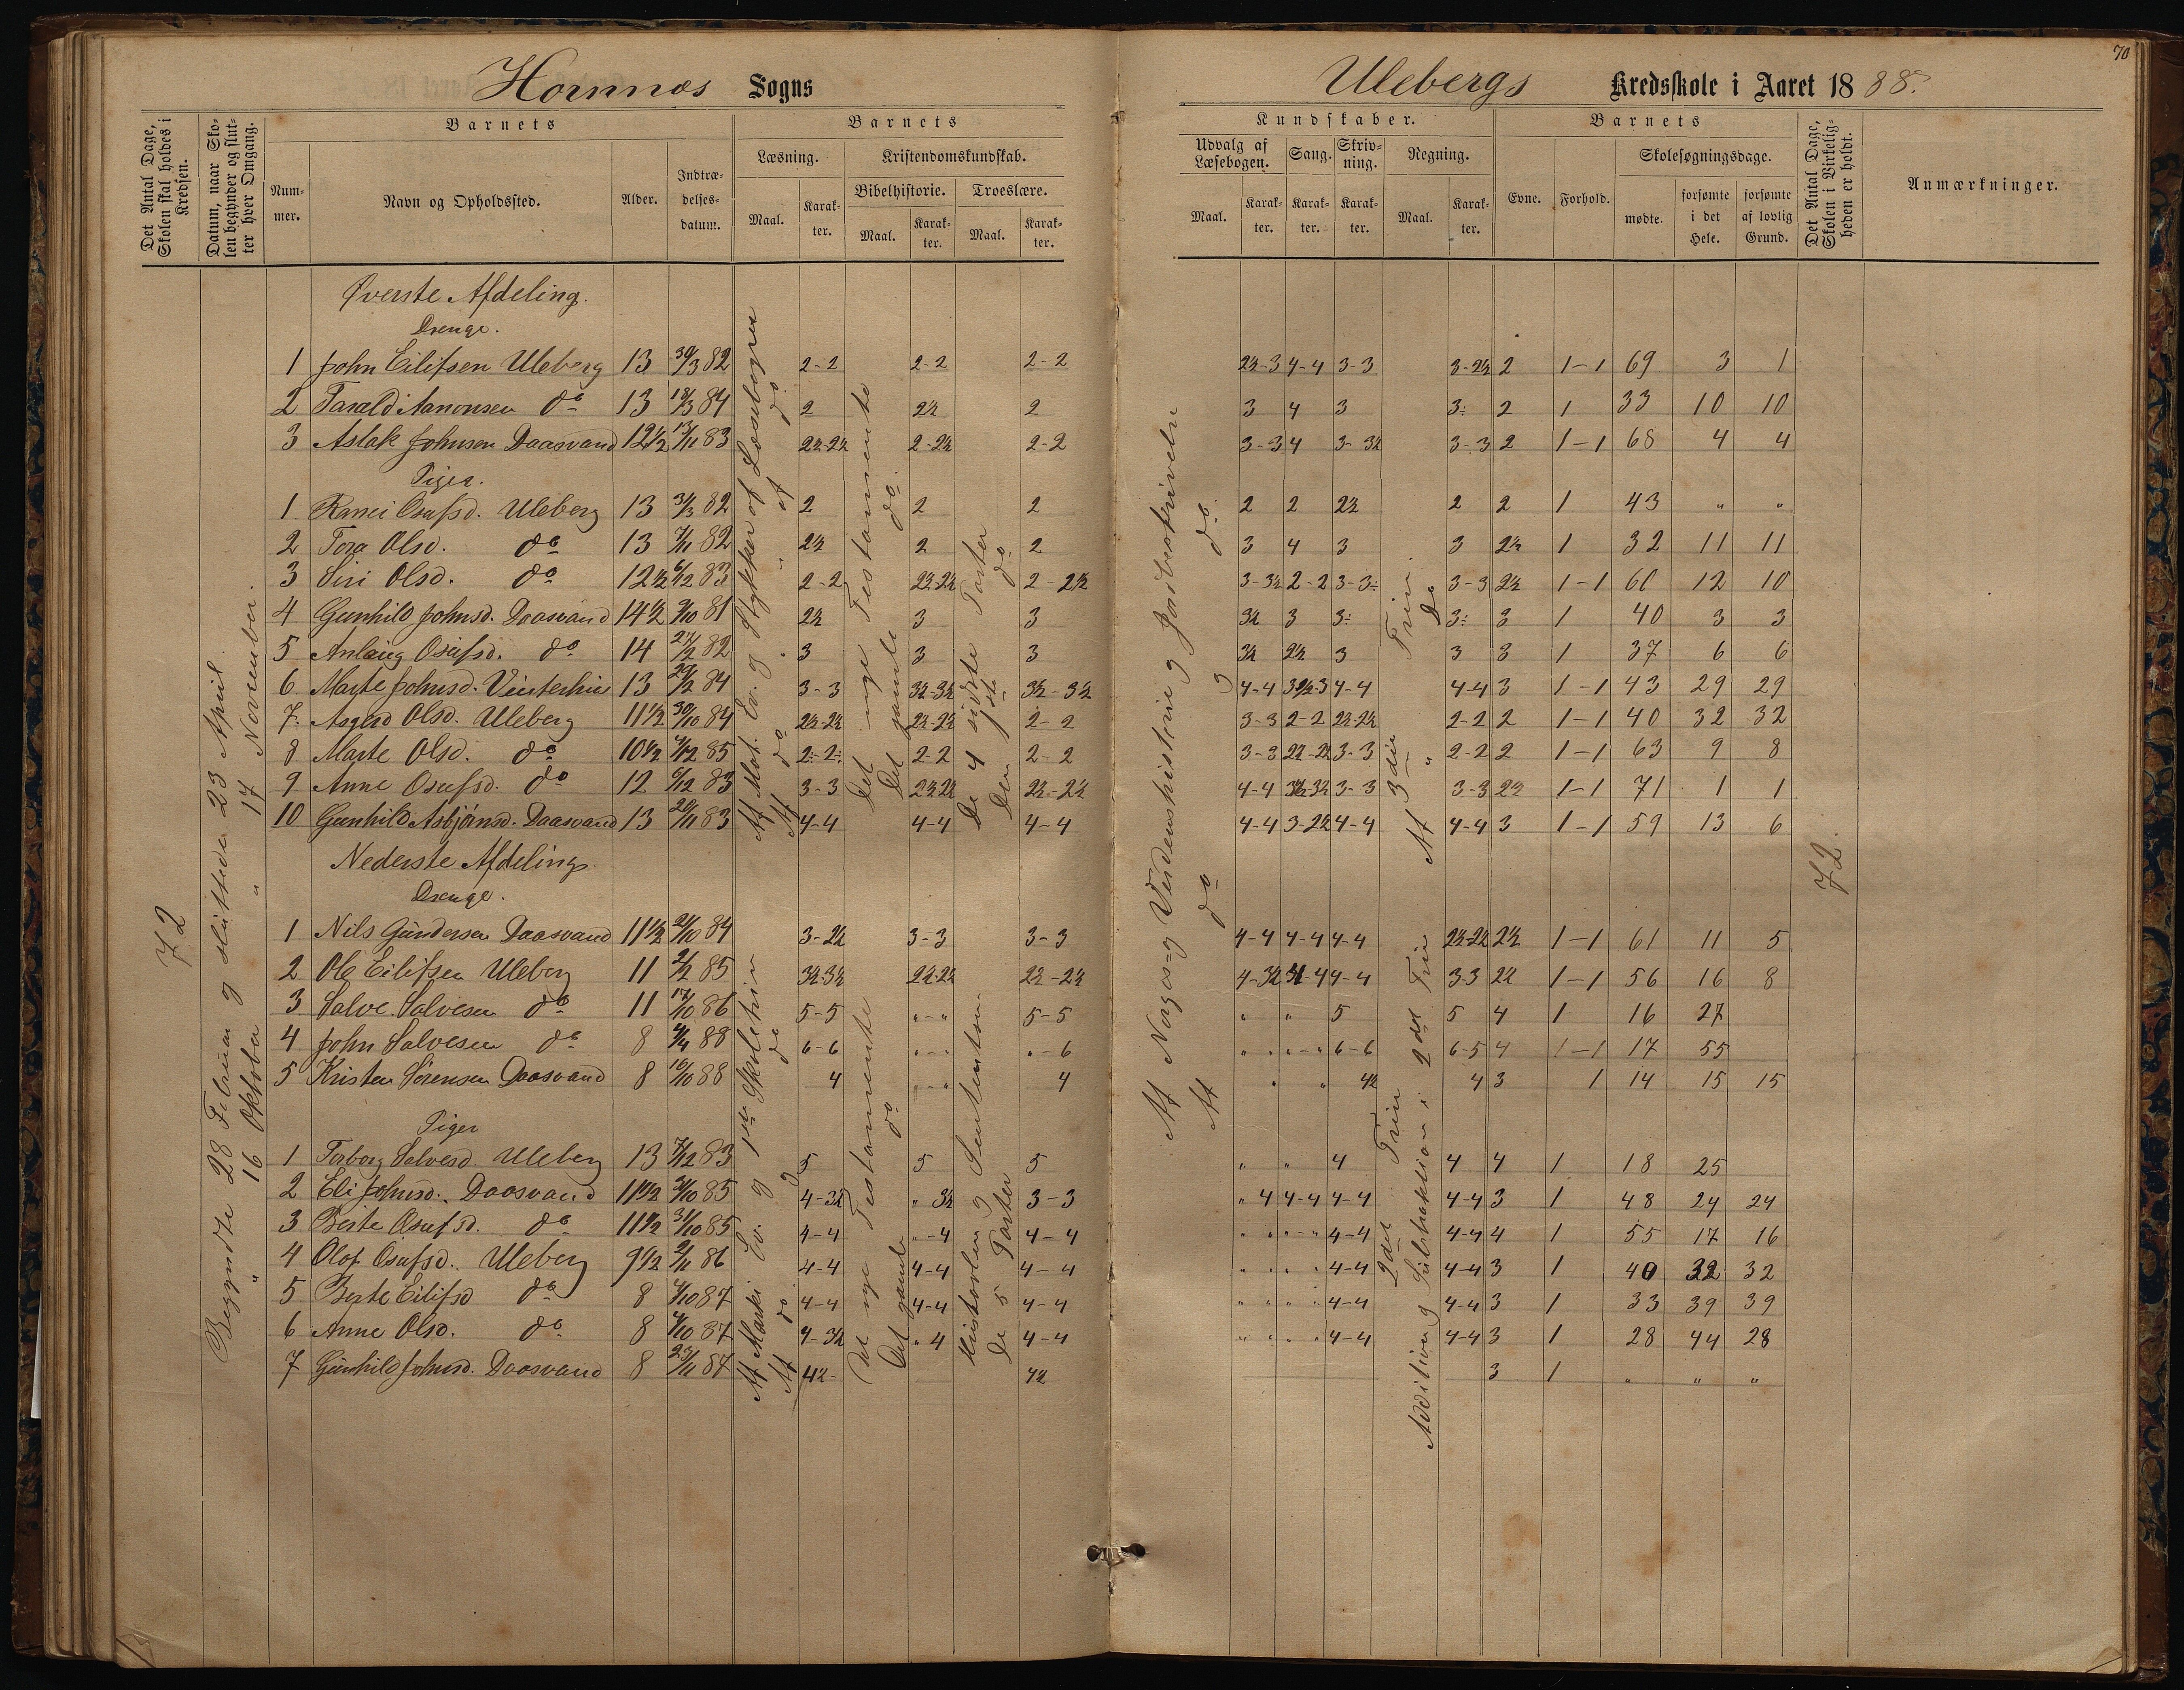 70
Hornnæs Sogns
Ulebergs Kredsskole i Aaret 1888.
Det Antal Dage, Skolen skal holdes i Kredsen.
Datum, naar Skolen begynder og slutter hver Omgang.
Barnets
Nummer.
Navn og Opholdssted.
Alder.
Indtrædelsesdatum.
Barnets
Læsning.
Maal.
Karakter.
Kristendomskundskab.
Bibelhistorie.
Maal.
Karakter.
Troeslære.
Maal.
Karakter.
Kundskaber.
Udvalg af Læsebogen.
Maal.
Karakter.
Sang.
Karakter.
Skrivning.
Karakter.
Regning.
Maal.
Karakter.
Barnets
Evne.
Forhold.
Skolesøgningsdage.
mødte.
forsømte i det Hele.
forsømte af lovlig Grund.
Det Antal Dage, Skolen i Virkeligheden er holdt.
Anmærkninger.
72
Begyndte 28 Februar og sluttede 23 April.
" 16 Oktober " 17 November.
Øverste Afdeling.
Drenge.
1 John Eilifsen Uleberg 13 30/3 82 2-2 2-2 2-2 2½-3 4-4 3-3 3-2½ 2 1-1 69 3 1
2 Tarald Aanonsen do 13 84 2 2½ 2 3 4 3 3: 2 1 33 10 10
3 Aslak Johnsen Daasvand 12½ 13/11 83 2½-2½ 2-2½ 2-2 3-3 4 3-3½ 3-3 2 1-1 68 4 4
Piger.
1 Osufsd. Uleberg 13 31/3 82 2 2 2 2 2 2½ 2 2 1 43 " "
2 Tora Olsd. do 13 7/11 82 2½ 2 2 3 4 3 3 2½ 1 32 11 11
3 Siri Olsd. do 12½ 6/12 83 2-2 2½-2½ 2-2½ 3-3½ 2-2 3-3: 3-3 2½ 1-1 60 12 10
4 Gunhild Johnsd. Daasvand 14½ 81 2½ 3 3 3½ 3 3: 3: 3 1 40 3 3
5 Anlaug Osufsd. do 14 82 3 3 3 3½ 2½ 3 3 3 1 37 6 6
6 Marte Johnsd. Vinterhus 13 84 3-3 3½-3½ 3½-3½ 4-4 3½-3 4-4 4-4 3 1-1 43 29 29
7 Asgerd Olsd. Uleberg 11½ 30/10 84 2½-2½ 2½-2½ 2-2 3-3 2-2 2½-2½ 2-2 2 1-1 40 32 32
8 Marte Olsd. do 10½ 4/12 85 2:-2: 2-2 2-2 3-3 2½-2½ 3-3 2-2 2 1-1 63 9 8
9 Anne Osufsd. do 12 6/12 83 3-3 2½-2½ 2½-2½ 4-4 3½-3½ 3-3 3-3 2½ 1-1 71 1 1
10 Gunhild Asbjörnsd. Daasvand 13 20/11 83 4-4 4-4 4-4 4-4 3-2½ 4-4 4-4 3 1-1 59 13 6
Nederste Afdeling.
Drenge.
1 Nils Gundersen Daasvand 11½ 21/10 84 3-2½ 3-3 3-3 4-4 4-4 4-4 2½-2½ 2½ 1-1 61 11 5
2 Ole Eilifsen Uleberg 11 2/2 85 3½-3½ 2½-2½ 2½-2½ 4-3½ 4-4 3-3 2½ 1-1 56 16 8
3 Salve Salvesen do 11 17/10 86 5-5 "-" 5-5 " " 5 5 4 1 16 27
4 John Salvesen do 8 4/4 88 6-6 "-" "-6 " " "-" 6-6 6-5 4 1-1 17 55
5 Kristen Sörensen Daasvand 8 16/10 88 4 "-" 4 " " 4½ 4 3 1 14 15 15
Piger
1 Torborg Salvesd. Uleberg 13 7/12 83 5 5 5 " " 4 4 4 1 18 25
2 Eli Johnsd. Daasvand 11½ 31/10 85 4-3½ " 3½ 3-3 " 4 4-4 4-4 4-4 3 1 48 24 24
3 Berte Osufsd. do 11½ 31/10 85 4-4 "-4 4-4 " " "-" 4-4 4-4 4 1 55 17 16
4 Olof Osufsd. Uleberg 9½ 2/11 86 4-4 4-4 4-4 " " " 4-4 4-4 3 1 40 32 32
5 Berte Eilifsd do 8 4/10 87 4-4 4-4 4-4 " " " " 4-4 4-4 3 1 33 39 39
6 Anne Olsd. do 8 4/10 87 4-3½ " 4 4-4 " " " " 4-4 4-4 3 1 28 44 28
7 Gunhild Johnsd. Daasvand 8 23/11 87 4½- 4½ 3 1 " " "
Af Mat. Ev. og Stykker af Læsebogen
Af do " af do
Det nye Testamente
Det gamle do.
De 4 sidste Parter
Den 1ste do
Af Marki Ev. og 1ste Skoletrin
Af do og do
Det nye Testamente
Det gamle do
Historien og Sentensen
De 5 Parter
Af Norges- og Verdenshistorie og Jordbeskrivelse
Af do do
3die Trin.
Af " Do
2det Trin
Addition og Subtraktion i 2det Trin
72.